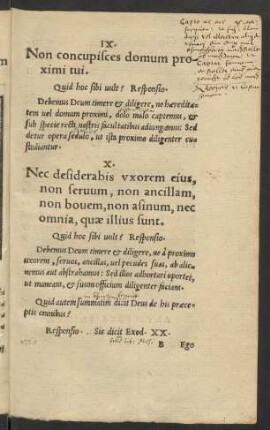 IX.
Non concupisces domum pro-
ximi tui.
Quid hoc sibi uult? Responsio.
Debemus Deum timere & diligere, ne hæredita-
tem uel domum proximi, dolo malo captemus, et
sub specie recti nostris facultatibus adiungamus: Sed
detur opera sedulo, ut ista proximo diligenter cu-
stodiantur.
X.
Nec desiderabis vxorem eius,
non seruum, non ancillam,
non bouem, non asinum, nec
omnia, quæ illius sunt.
Quid hoc sibi uult? Responsio.
Debemus Deum timere & diligere, ne à proximo
uxorem, seruos, ancillas, uel pecudes suas, ab alie-
nemus aut abstrahamus: Sed illos adhortari oportet,
ut maneant, & suum officium diligenter faciant.
Quid autem summatim dicit Deus de his præce-
ptis omnibus?
Responsio. Sic dicit Exod. XX.
B Ego